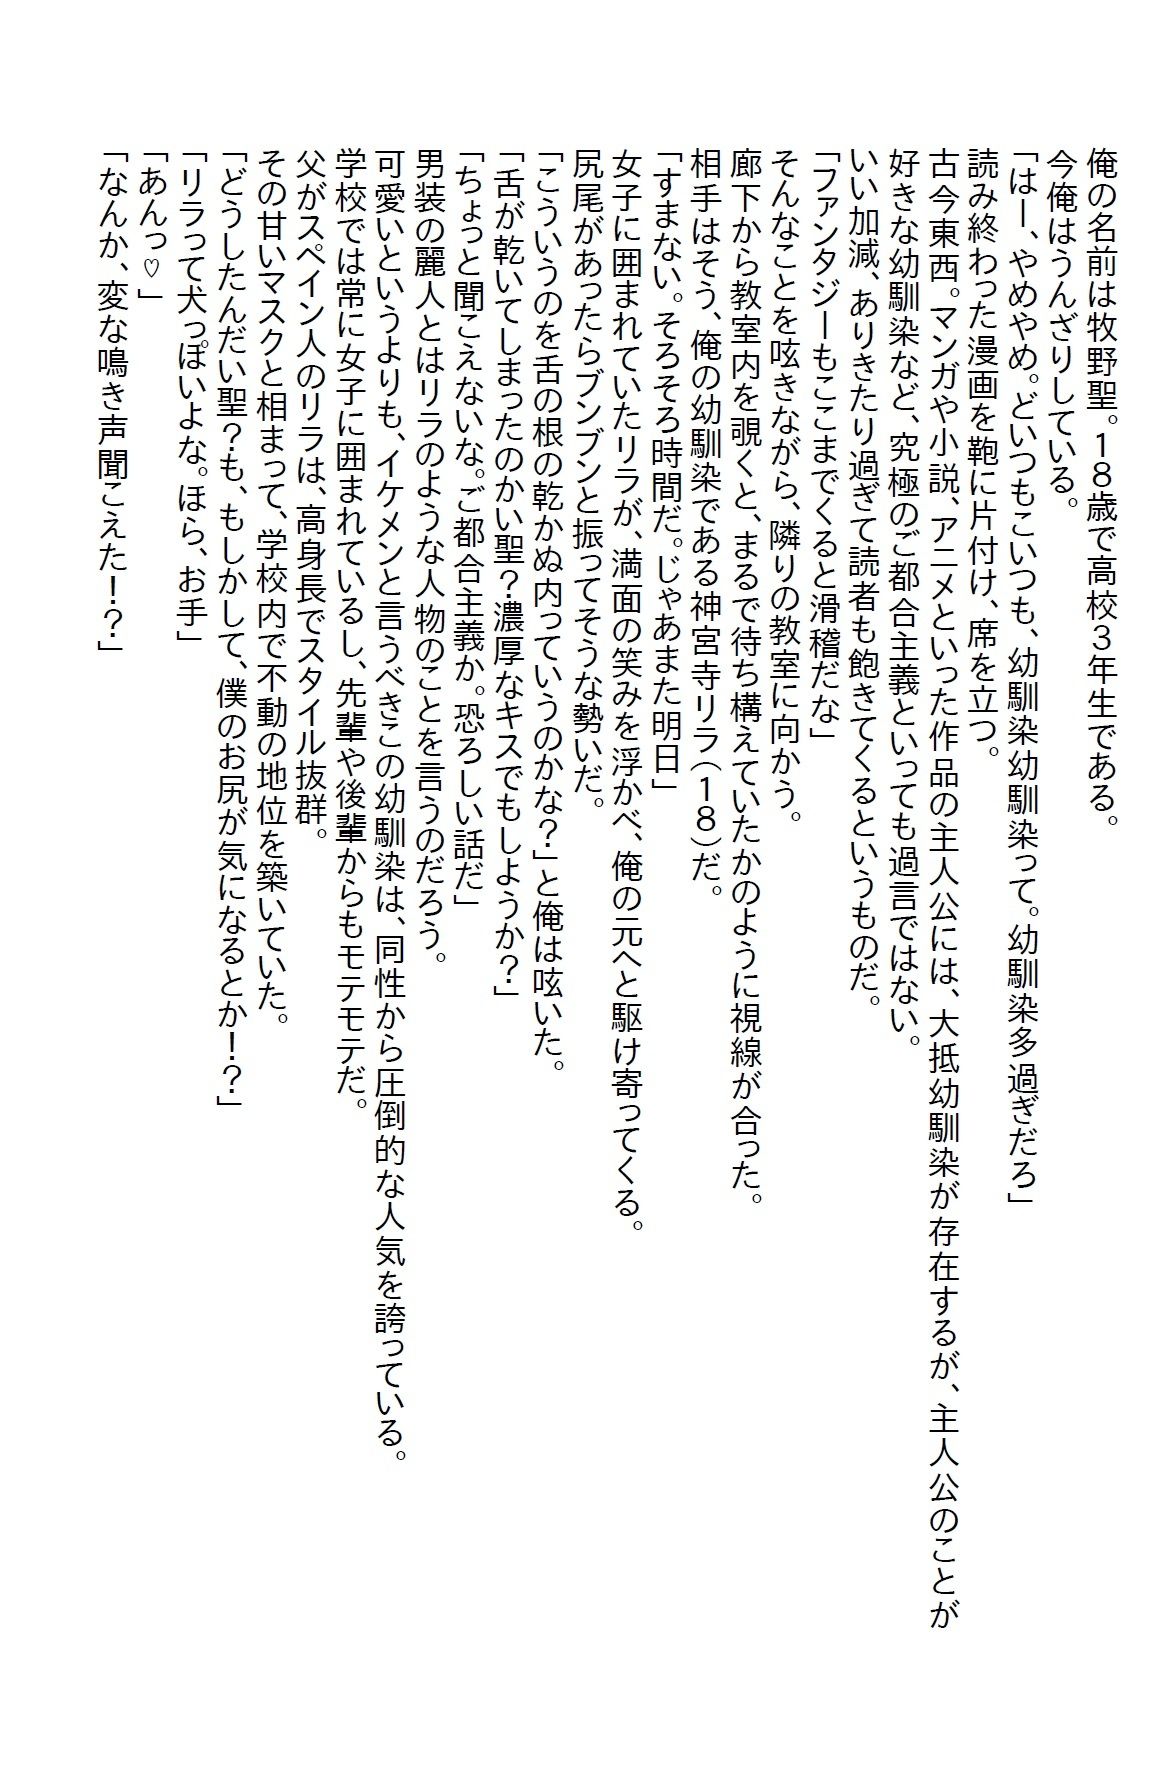 俺の名前は牧野聖。１８歳で高校３年生である。
今俺はうんざりしている。
「はー、やめやめ。どいつもこいつも、幼馴染幼馴染って。幼馴染多過ぎだろ」
読み終わった漫画を鞄に片付け、席を立つ。
古今東西。マンガや小説、アニメといった作品の主人公には、大抵幼馴染が存在するが、主人公のことが
好きな幼馴染など、究極のご都合主義といっても過言ではない。
いい加減、ありきたり過ぎて読者も飽きてくるというものだ。
「ファンタジーもここまでくると滑稽だな」
そんなことを呟きながら、隣りの教室に向かう。
廊下から教室内を覗くと、まるで待ち構えていたかのように視線が合った。
相手はそう、俺の幼馴染である神宮寺リラ（１８）だ。
「すまない。そろそろ時間だ。じゃあまた明日」
女子に囲まれていたリラが、満面の笑みを浮かべ、俺の元へと駆け寄ってくる。
尻尾があったらブンブンと振ってそうな勢いだ。
「こういうのを舌の根の乾かぬ内っていうのかな？」と俺は呟いた。
「舌が乾いてしまったのかい聖？濃厚なキスでもしようか？」
「ちょっと聞こえないな。ご都合主義か。恐ろしい話だ」
男装の麗人とはリラのような人物のことを言うのだろう。
可愛いというよりも、イケメンと言うべきこの幼馴染は、同性から圧倒的な人気を誇っている。
学校では常に女子に囲まれているし、先輩や後輩からもモテモテだ。
父がスペイン人のリラは、高身長でスタイル抜群。
その甘いマスクと相まって、学校内で不動の地位を築いていた。
「どうしたんだい聖？も、もしかして、僕のお尻が気になるとか！？」
「リラって犬っぽいよな。ほら、お手」
「あんっ♡」
「なんか、変な鳴き声聞こえた！？」